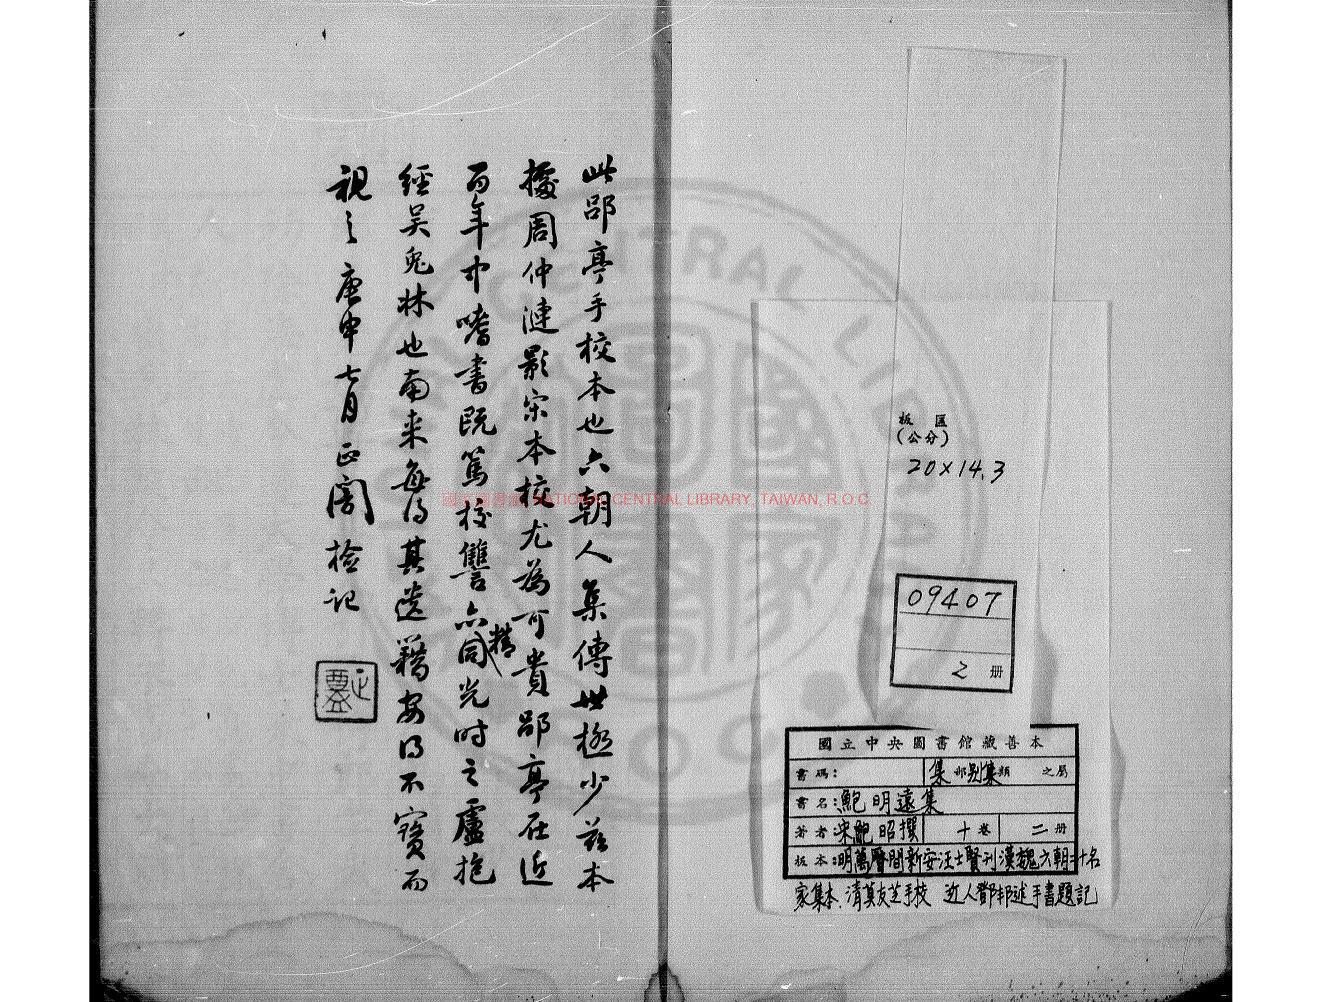 此郘亭手校本也六朝人集傳世極少茲本
據周仲漣影宋本校尤為可貴郘亭在近
百年中嗜書既篤校讐亦精同光時之盧抱
經吳兔牀也南来每得其遺籍安得不寶而
視之庚申七月正闇檢記
正盦
板匡
(公分)
20×14.3
09407
2 册
國立中央圖書館藏善本
書碼: 集部別集類 之屬
書名:鮑明遠集
著者:宋鮑昭撰 十卷 二册
板本:明萬曆間新安汪士賢刊漢魏六朝廿名
家集本 清莫友芝手校 近人鄧邦述手書題記
國家圖書館 NATIONAL CENTRAL LIBRARY, TAIWAN, R.O.C